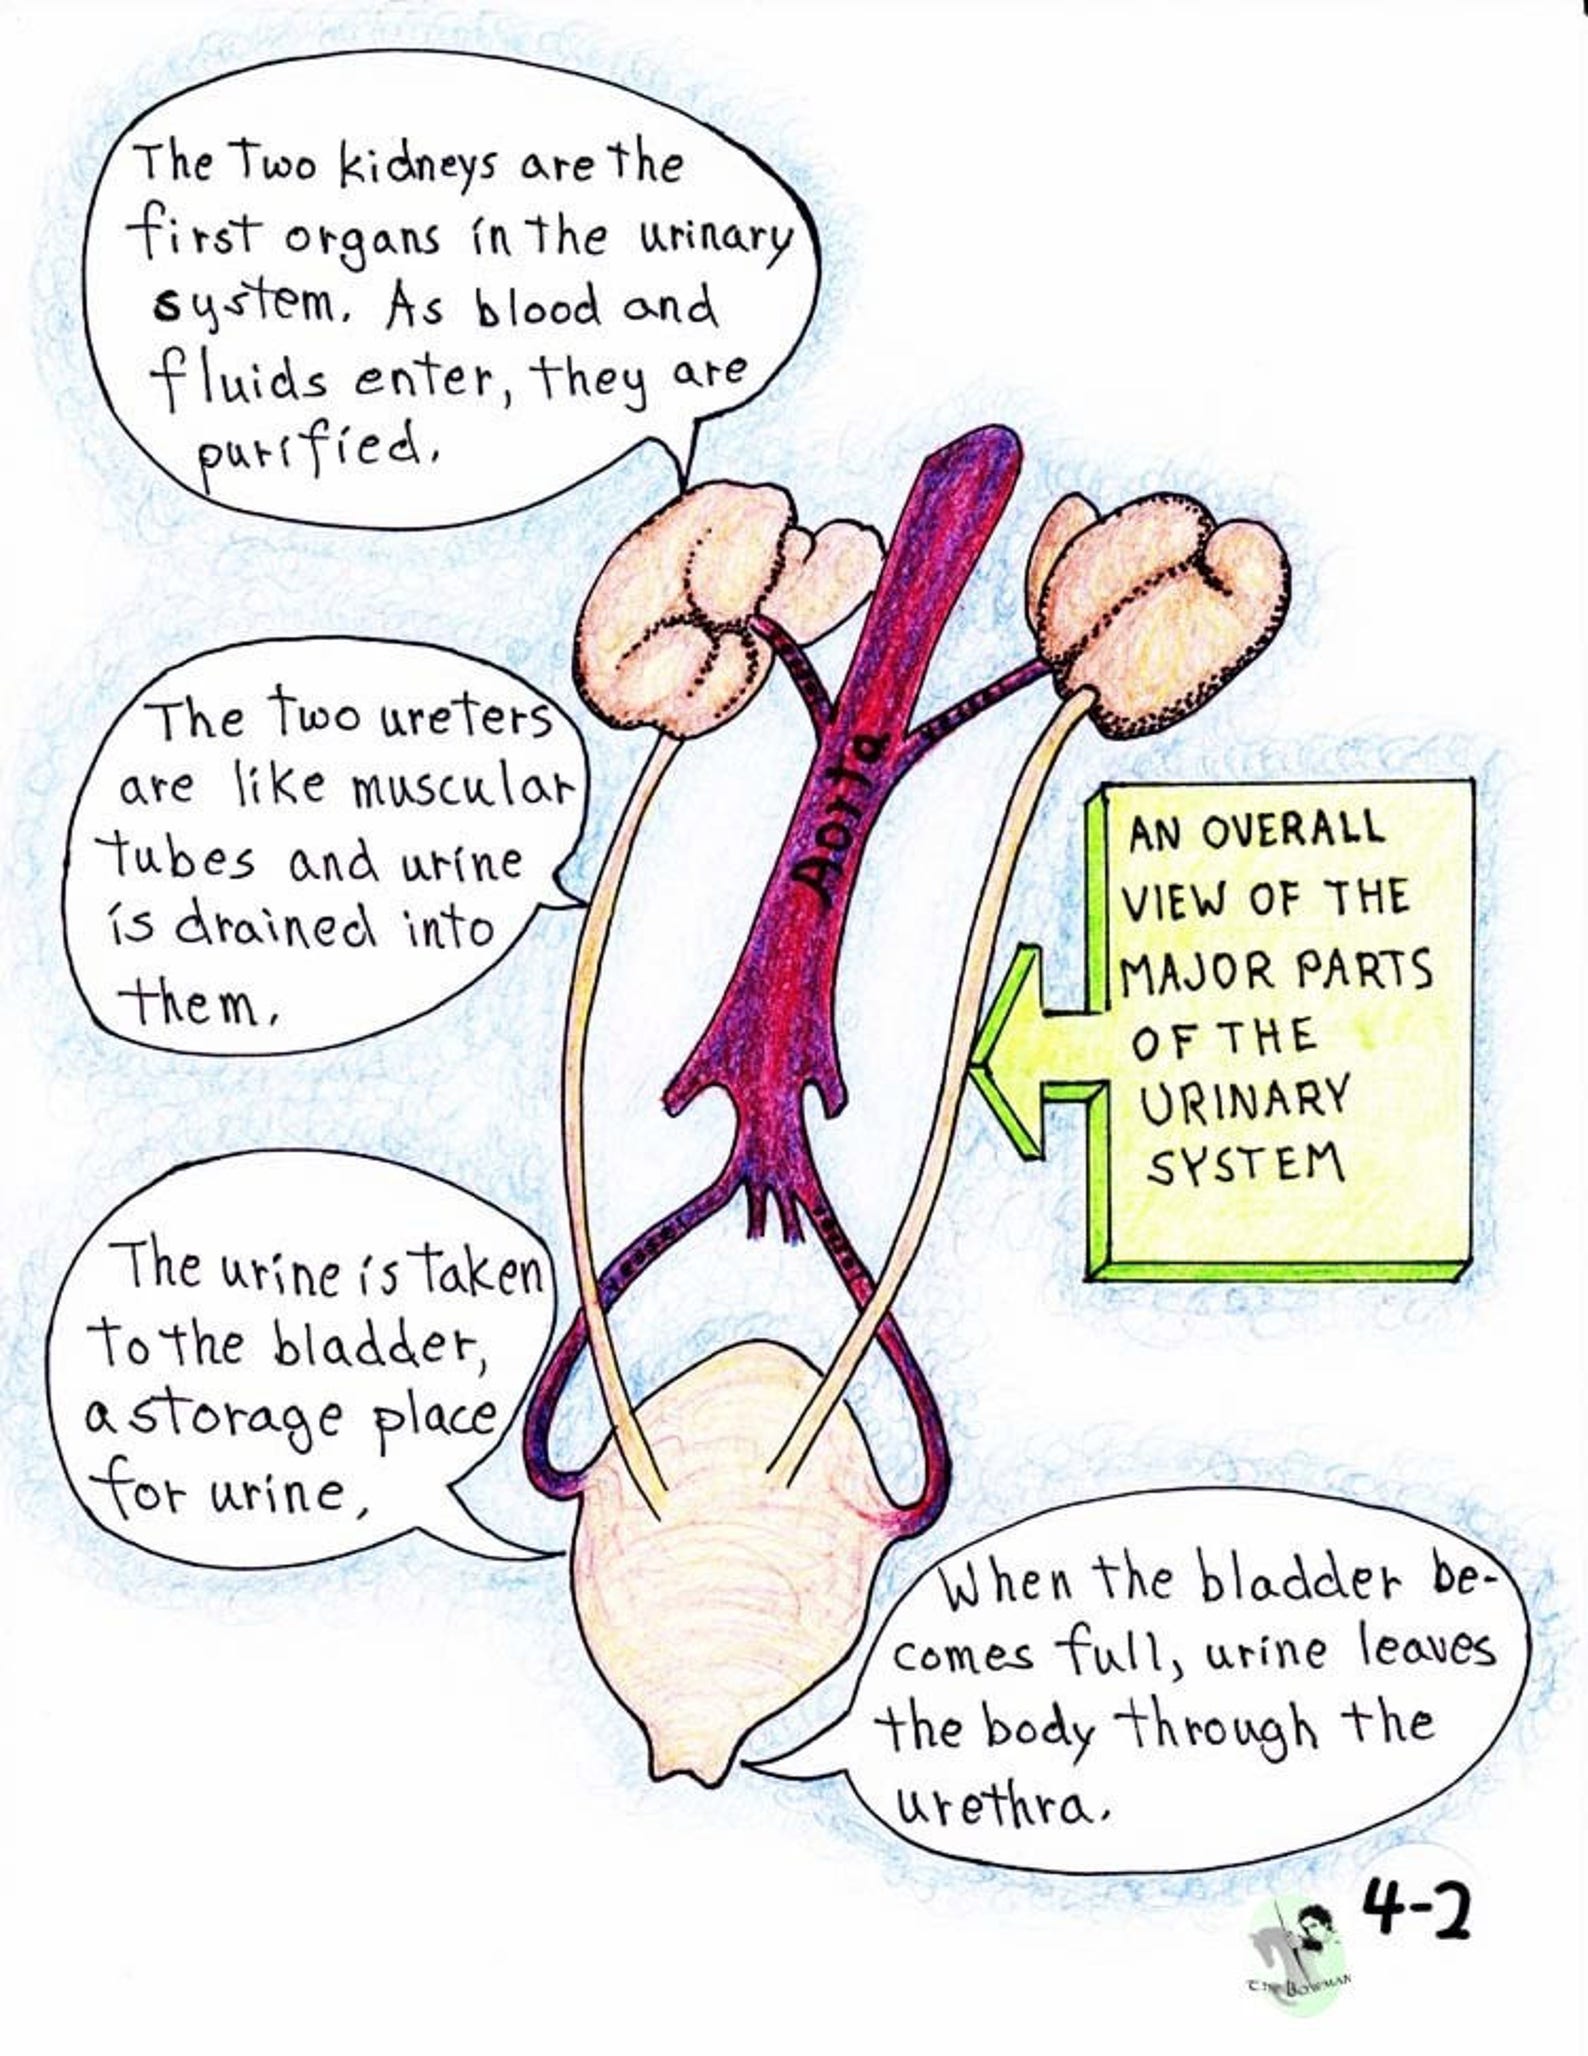 The Two kidneys are the
first organs in the urinary
system. As blood and
fluids enter, they are
purified.
The two ureters
are like muscular
tubes and urine
is drained into
them.
Aorta
AN OVERALL
VIEW OF THE
MAJOR PARTS
OF THE
URINARY
SYSTEM
The urine is taken
to the bladder,
a storage place
for urine.
When the bladder be-
comes full, urine leaves
the body through the
urethra.
4-2
The Bowman